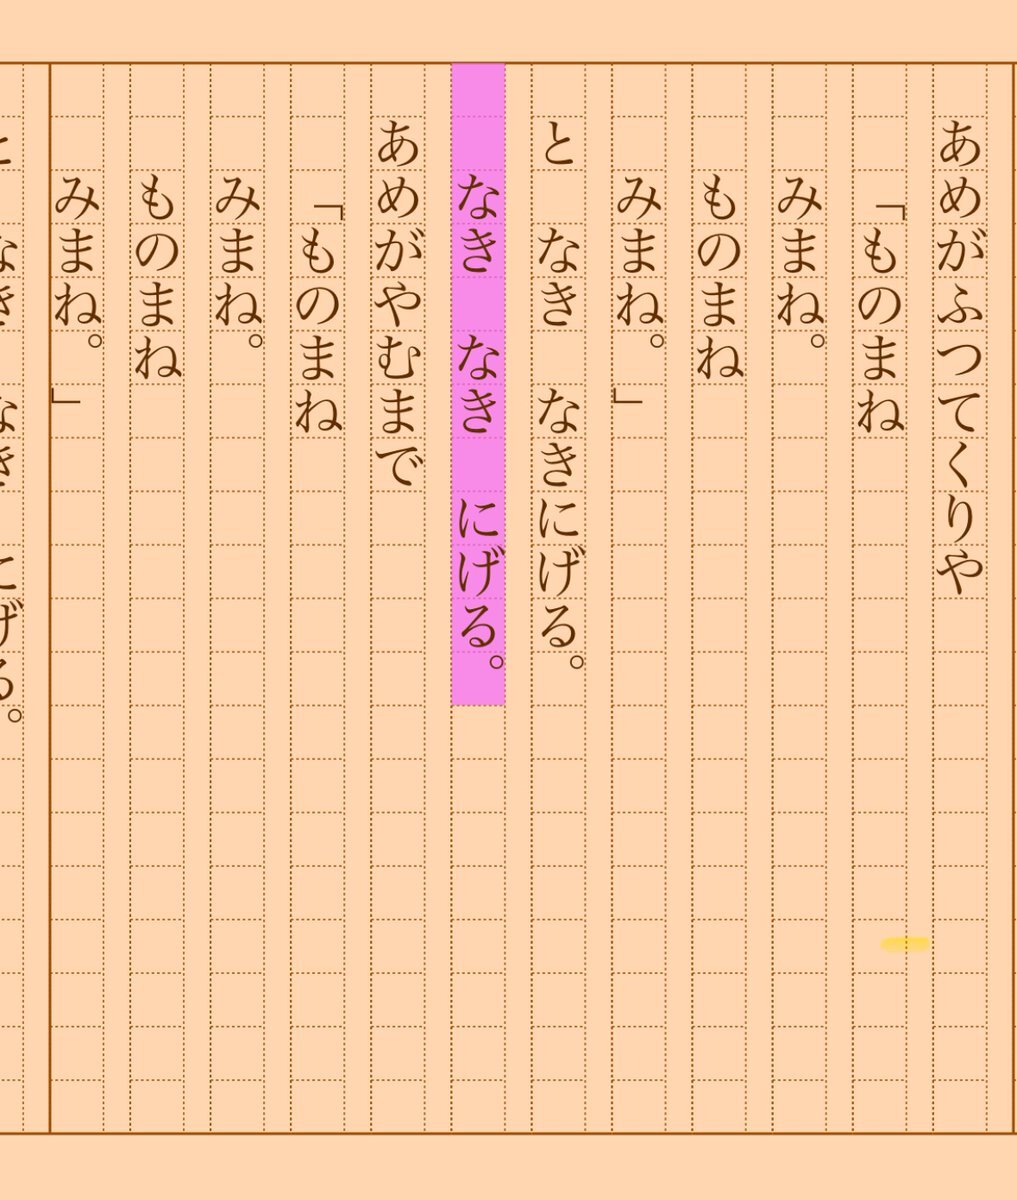 あめがふつてくりや
「ものまね
みまね。
ものまね
みまね。」
と　なき　なきにげる。
なき　なき　にげる。
あめがやむまで
「ものまね
みまね。
ものまね
みまね。」
と　なき　なき　にげる。